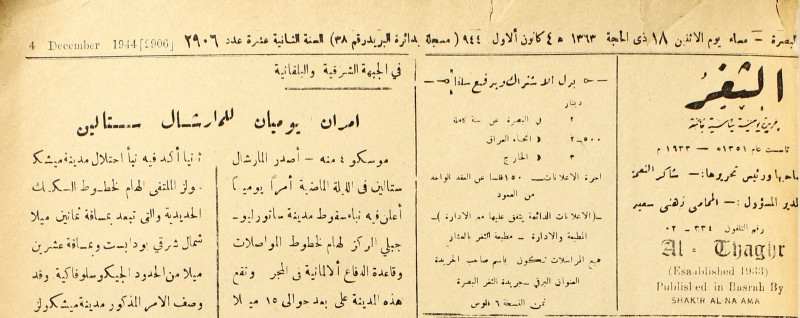 البصرة – مساء يوم الاثنين ١٨ ذى الحجة ١٣٦٣ هـ ٤ كانون الاول ٩٤٤ ( مسجلة بدائرة البريد رقم ٣٨ ) السنة الثانية عشرة عدد ٢٩٠٦
4 December 1944 [2906]
الثغر
جريدة يومية سياسية
تأسست عام ١٣٥١ هـ – ١٩٣٣ م
صاحبها ورئيس تحريرها :– شاكر النعمة
المدير المسؤول :– المحامى زهنى سعيد
رقم التلفون ٣٣٤ – ٠٢
Al - Thaghr
(Esaablished 1933)
Published in Basrah By
SHAKIR AL-NA AMA
بدل الاشتراك ويدفع سلفاً
دينار
٢ فى البصرة عن سنة كاملة
٢–٥٠٠ » انحاء العراق
٣ » الخارج
اجرة الاعلانات – ١٥٠ فلسا عن العقد الواحد
من العمود
–( الاعلانات الدائمة يتفق عليها مع الادارة )–
المطبعة والادارة – مطبعة الثغر بالعشار
جميع المراسلات تكون باسم صاحب الجريدة
العنوان البرقي – جريدة الثغر البصرة
ثمن النسخة ٦ فلوس
في الجبهة الشرقية والبلقانية
امران يوميان للمارشال ستالين
موسكو ٤ منه – أصدر المارشال
ستالين في الليلة الماضية أمراً يومياً
أعلن فيه نباء سقوط مدينة ساتورليو–
جبلي المركز الهام لخطوط المواصلات
وقاعدة الدفاع الألمانية في المجر وتقع
هذه المدينة على بعد حوالي ١٥ ميلا
ثانيا أكد فيه نبأ احتلال مدينة ميشكو
ولز الملتقى الهام لخطوط السكك
الحديدية والتى تبعد بمسافة ثمانين ميلا
شمال شرقي بودابست وبمسافة عشرين
ميلا من الحدود الجيكوسلوفاكية وقد
وصف الامر المذكور مدينة ميشكولز